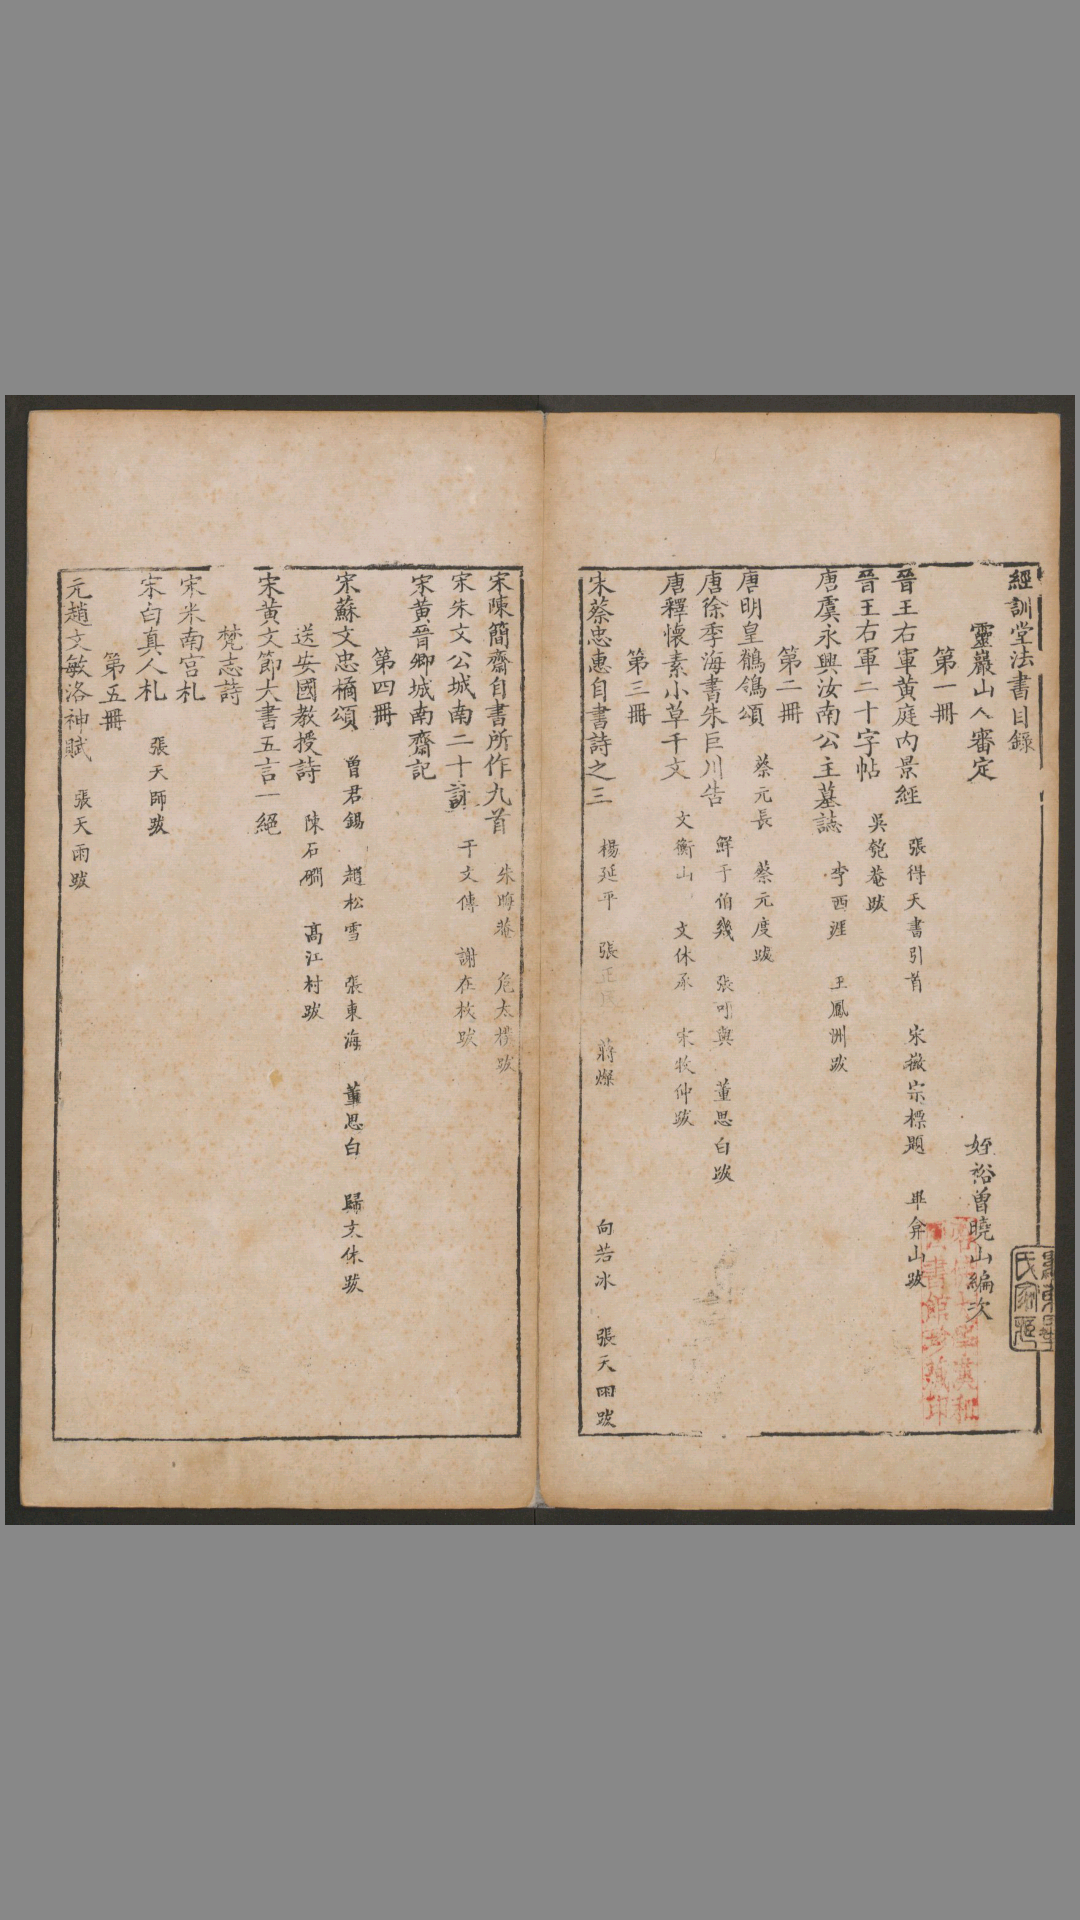 經訓堂法書目錄
靈巖山人審定　姪裕曾曉山編次
第一冊
晉王右軍黃庭內景經　張得天書引首　宋徽宗標題　畢弇山跋
晉王右軍二十字帖　吳匏菴跋
唐虞永興汝南公主墓誌　李西涯　王鳳洲跋
第二冊
唐明皇鶺鴒頌　蔡元長　蔡元度跋
唐徐季海書朱巨川告　鮮于伯幾　張可與　董思白跋
唐釋懷素小草千文　文衡山　文休承　宋牧仲跋
第三冊
宋蔡忠惠自書詩之三　楊延平　張正民　蔣燦　向若冰　張天雨跋
宋陳簡齋自書所作九首　朱晦菴　危太樸跋
宋朱文公城南二十詠　干文傳　謝在杭跋
宋黃晉卿城南齋記
第四冊
宋蘇文忠橘頌　曾君錫　趙松雪　張東海　董思白　歸文休跋
送安國教授詩　陳石磵　高江村跋
宋黃文節大書五言一絕
梵志詩
宋米南宮札
宋白真人札　張天師跋
第五冊
元趙文敏洛神賦　張天雨跋